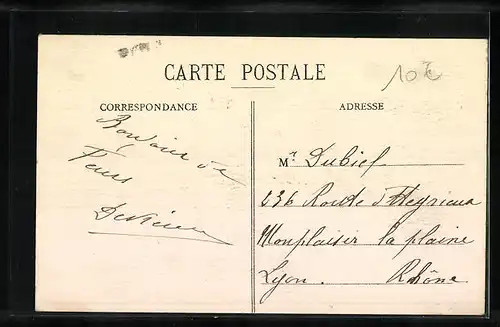 CARTE POSTALE
10€
CORRESPONDANCE
ADRESSE
Bonjour de
Feurs
Mr Dubief
236 Route d'Heyrieux
Monplaisir la plaine
Lyon. Rhône